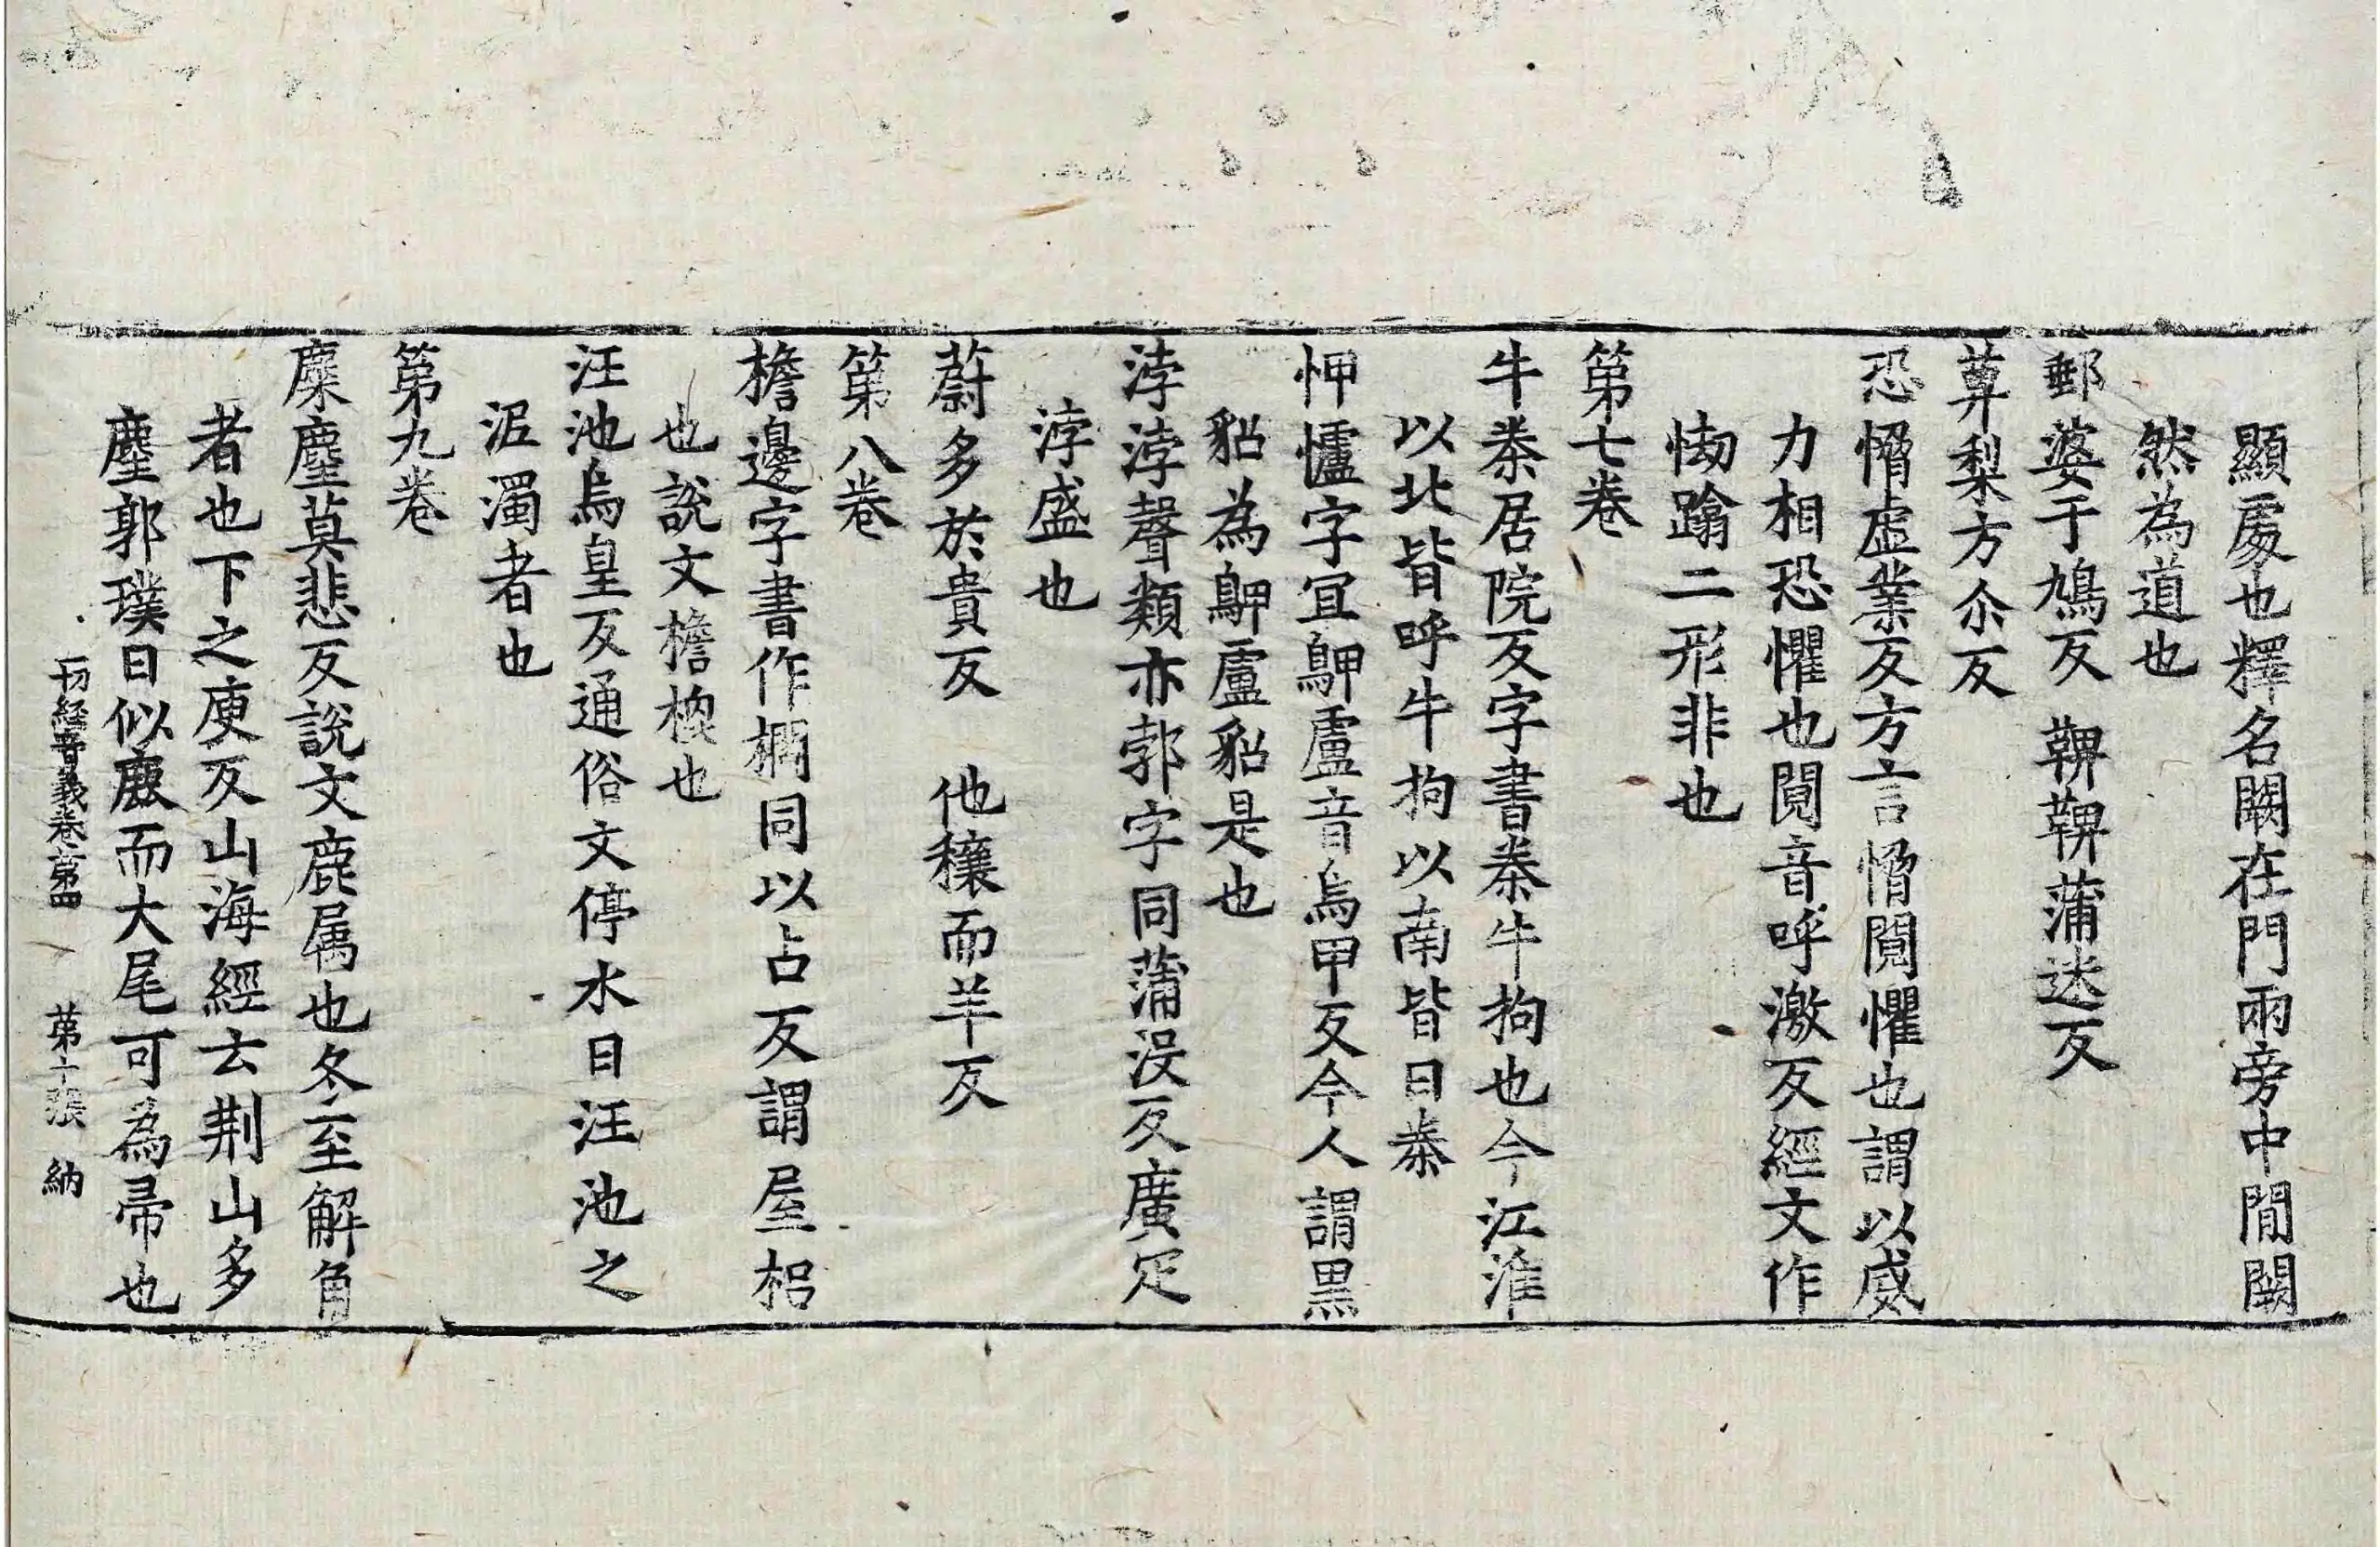 顯處也釋名闕在門兩旁中閒闕
然為道也
郵婆于鳩反 鞞鞞蒲迷反
萆梨方尒反
恐愶虛業反方言愶䦧懼也謂以威
力相恐懼也䦧音呼激反經文作
㤼蹹二形非也
第七卷
牛桊居院反字書桊牛拘也今江淮
以北皆呼牛拘以南皆曰桊
㤉㦡字冝鼾盧音烏甲反今人謂黑
貂為鼾盧貂是也
浡浡聲類亦郣字同蒲沒反廣疋
浡盛也
蔚多於貴反 他穰而羊反
第八卷
檐邊字書作橺同以占反謂屋梠
也說文檐㮰也
汪池烏皇反通俗文停水曰汪池之
洰濁者也
第九卷
麋麈莫悲反說文鹿屬也冬至解角
者也下之庾反山海經云荆山多
麈郭璞曰似鹿而大尾可為帚也
一切經音義卷第四 第十張 納